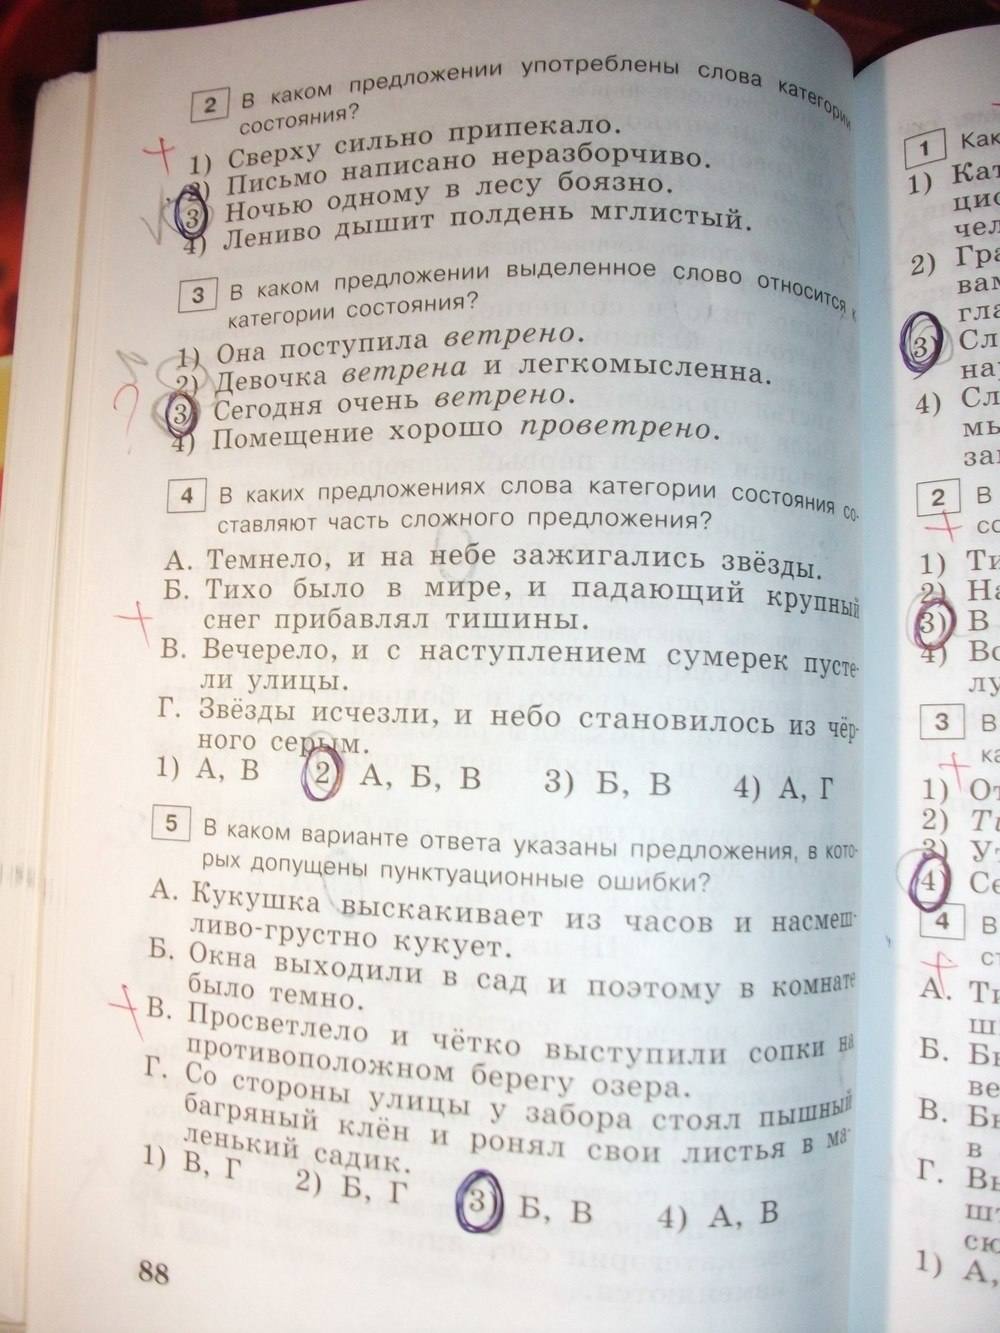 2 В каком предложении употреблены слова категории
состояния?
1) Сверху сильно припекало.
2) Письмо написано неразборчиво.
3) Ночью одному в лесу боязно.
4) Лениво дышит полдень мглистый.
3 В каком предложении выделенное слово относится к
категории состояния?
1) Она поступила ветрено.
2) Девочка ветрена и легкомысленна.
3) Сегодня очень ветрено.
4) Помещение хорошо проветрено.
4 В каких предложениях слова категории состояния со-
ставляют часть сложного предложения?
А. Темнело, и на небе зажигались звёзды.
Б. Тихо было в мире, и падающий крупный
снег прибавлял тишины.
В. Вечерело, и с наступлением сумерек пусте-
ли улицы.
Г. Звёзды исчезли, и небо становилось из чёр-
ного серым.
1) А, В 2) А, Б, В 3) Б, В 4) А, Г
5 В каком варианте ответа указаны предложения, в кото-
рых допущены пунктуационные ошибки?
А. Кукушка выскакивает из часов и насмеш-
ливо-грустно кукует.
Б. Окна выходили в сад и поэтому в комнате
было темно.
В. Просветлело и чётко выступили сопки на
противоположном берегу озера.
Г. Со стороны улицы у забора стоял пышный
багряный клён и ронял свои листья в ма-
ленький садик.
1) В, Г 2) Б, Г 3) Б, В 4) А, В
88
1 Как
1)
2)
3)
4)
2 В
1)
2)
3) В
4)
3 В
1)
2)
3)
4)
4 В
А.
Б.
В.
в
Г.
1) А,